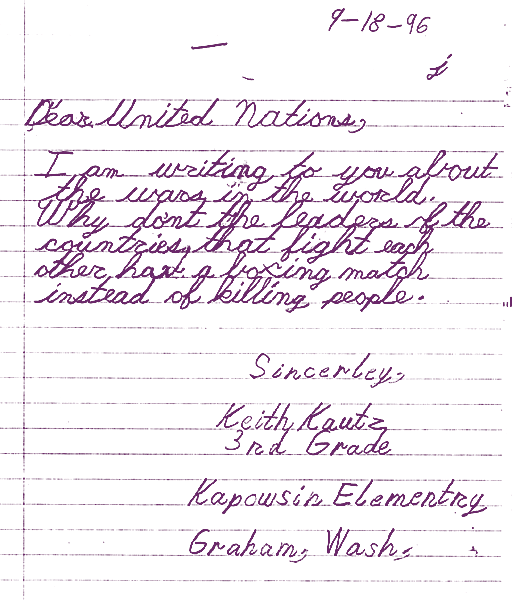 9-18-96
Dear United Nations,
I am writing to you about
the wars in the world.
Why dont the leaders of the
countries, that fight each
other have a boxing match
instead of killing people.
Sincerley,
Keith Kautz
3rd Grade
Kapowsin Elementry
Graham, Wash,